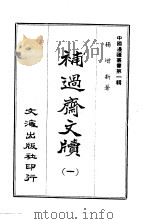 中國邊疆叢書第一輯
楊增新著
補過齋文牘
(一)
文海出版社印行